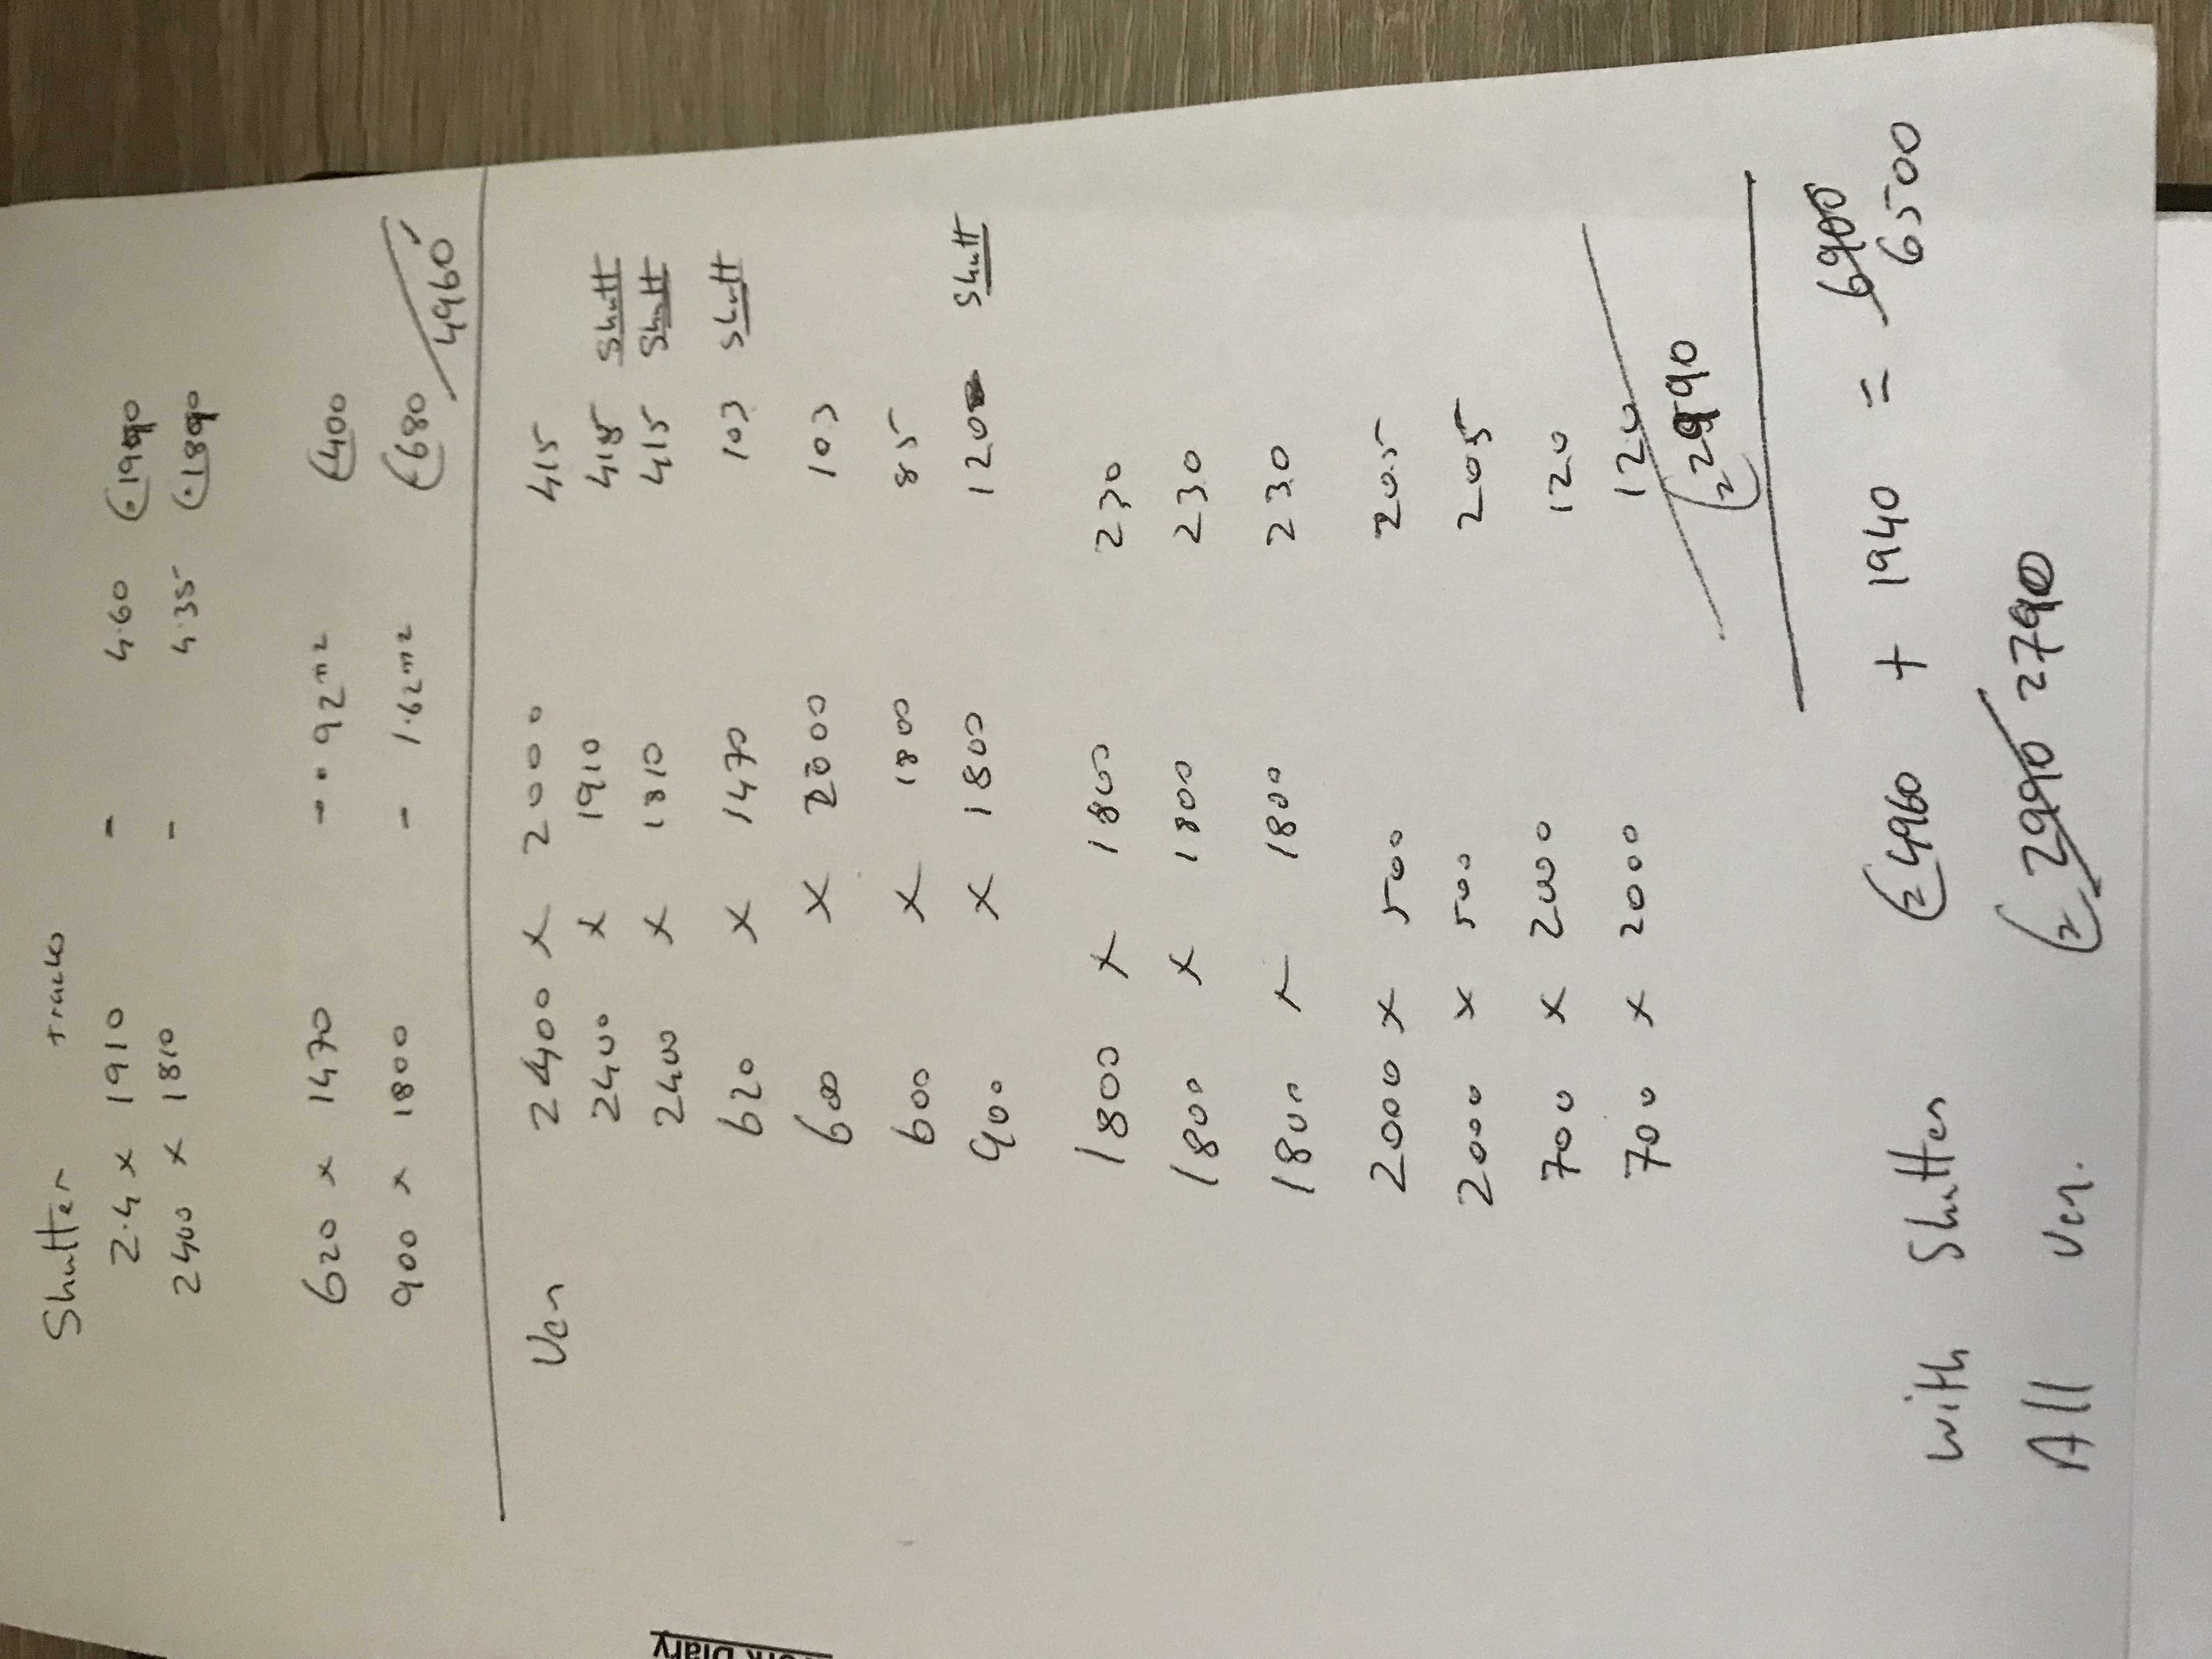 Shutter tracks
2.4 x 1910 - 4.60 £1990
2400 x 1810 - 4.35 £1890
620 x 1470 - .92m2 £400
900 x 1800 - 1.62m2 £680
4960
Ver 2400 x 2000 415
2400 x 1910 415 Shutt
2400 x 1810 415 Shutt
620 x 1470 103 Shutt
600 x 2000 103
600 x 1800 85
900 x 1800 120 Shutt
1800 x 1800 230
1800 x 1800 230
1800 x 1800 230
2000 x 500 205
2000 x 500 205
700 x 2000 120
700 x 2000 120
£2990
with Shutter £4960 + 1940 = 6900
6500
All Ver. £2990 2790
ork Diary